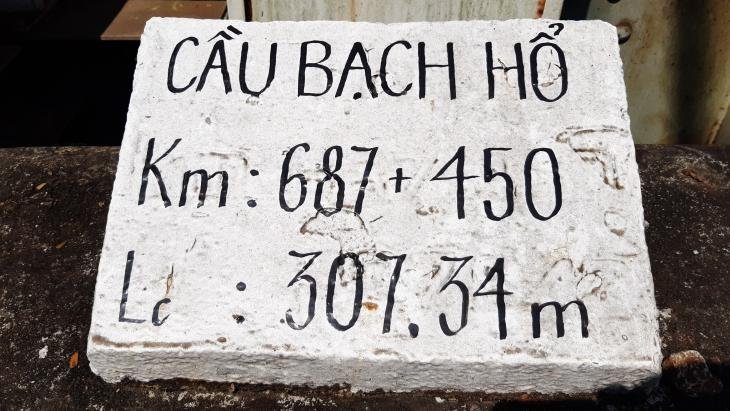 CẦU BẠCH HỔ
Km: 687+450
Lc : 307.34m